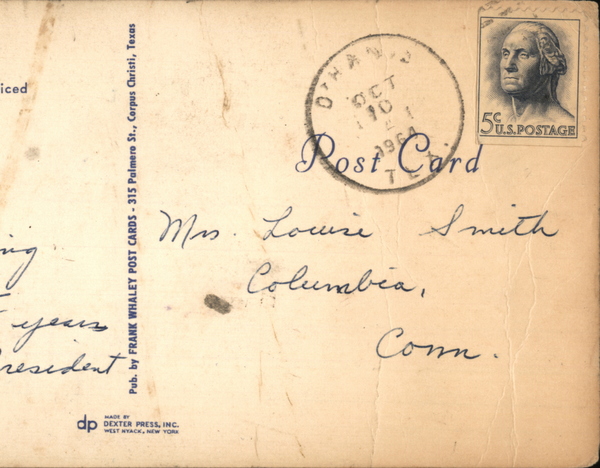 iced
D'HANIS
OCT
10
1964
TEX.
5¢
U.S. POSTAGE
Post Card
Mrs. Louise Smith
Columbia,
Conn.
ing
years
resident
Pub. by FRANK WHALEY POST CARDS - 315 Palmero St., Corpus Christi, Texas
dp
MADE BY
DEXTER PRESS, INC.
WEST NYACK, NEW YORK